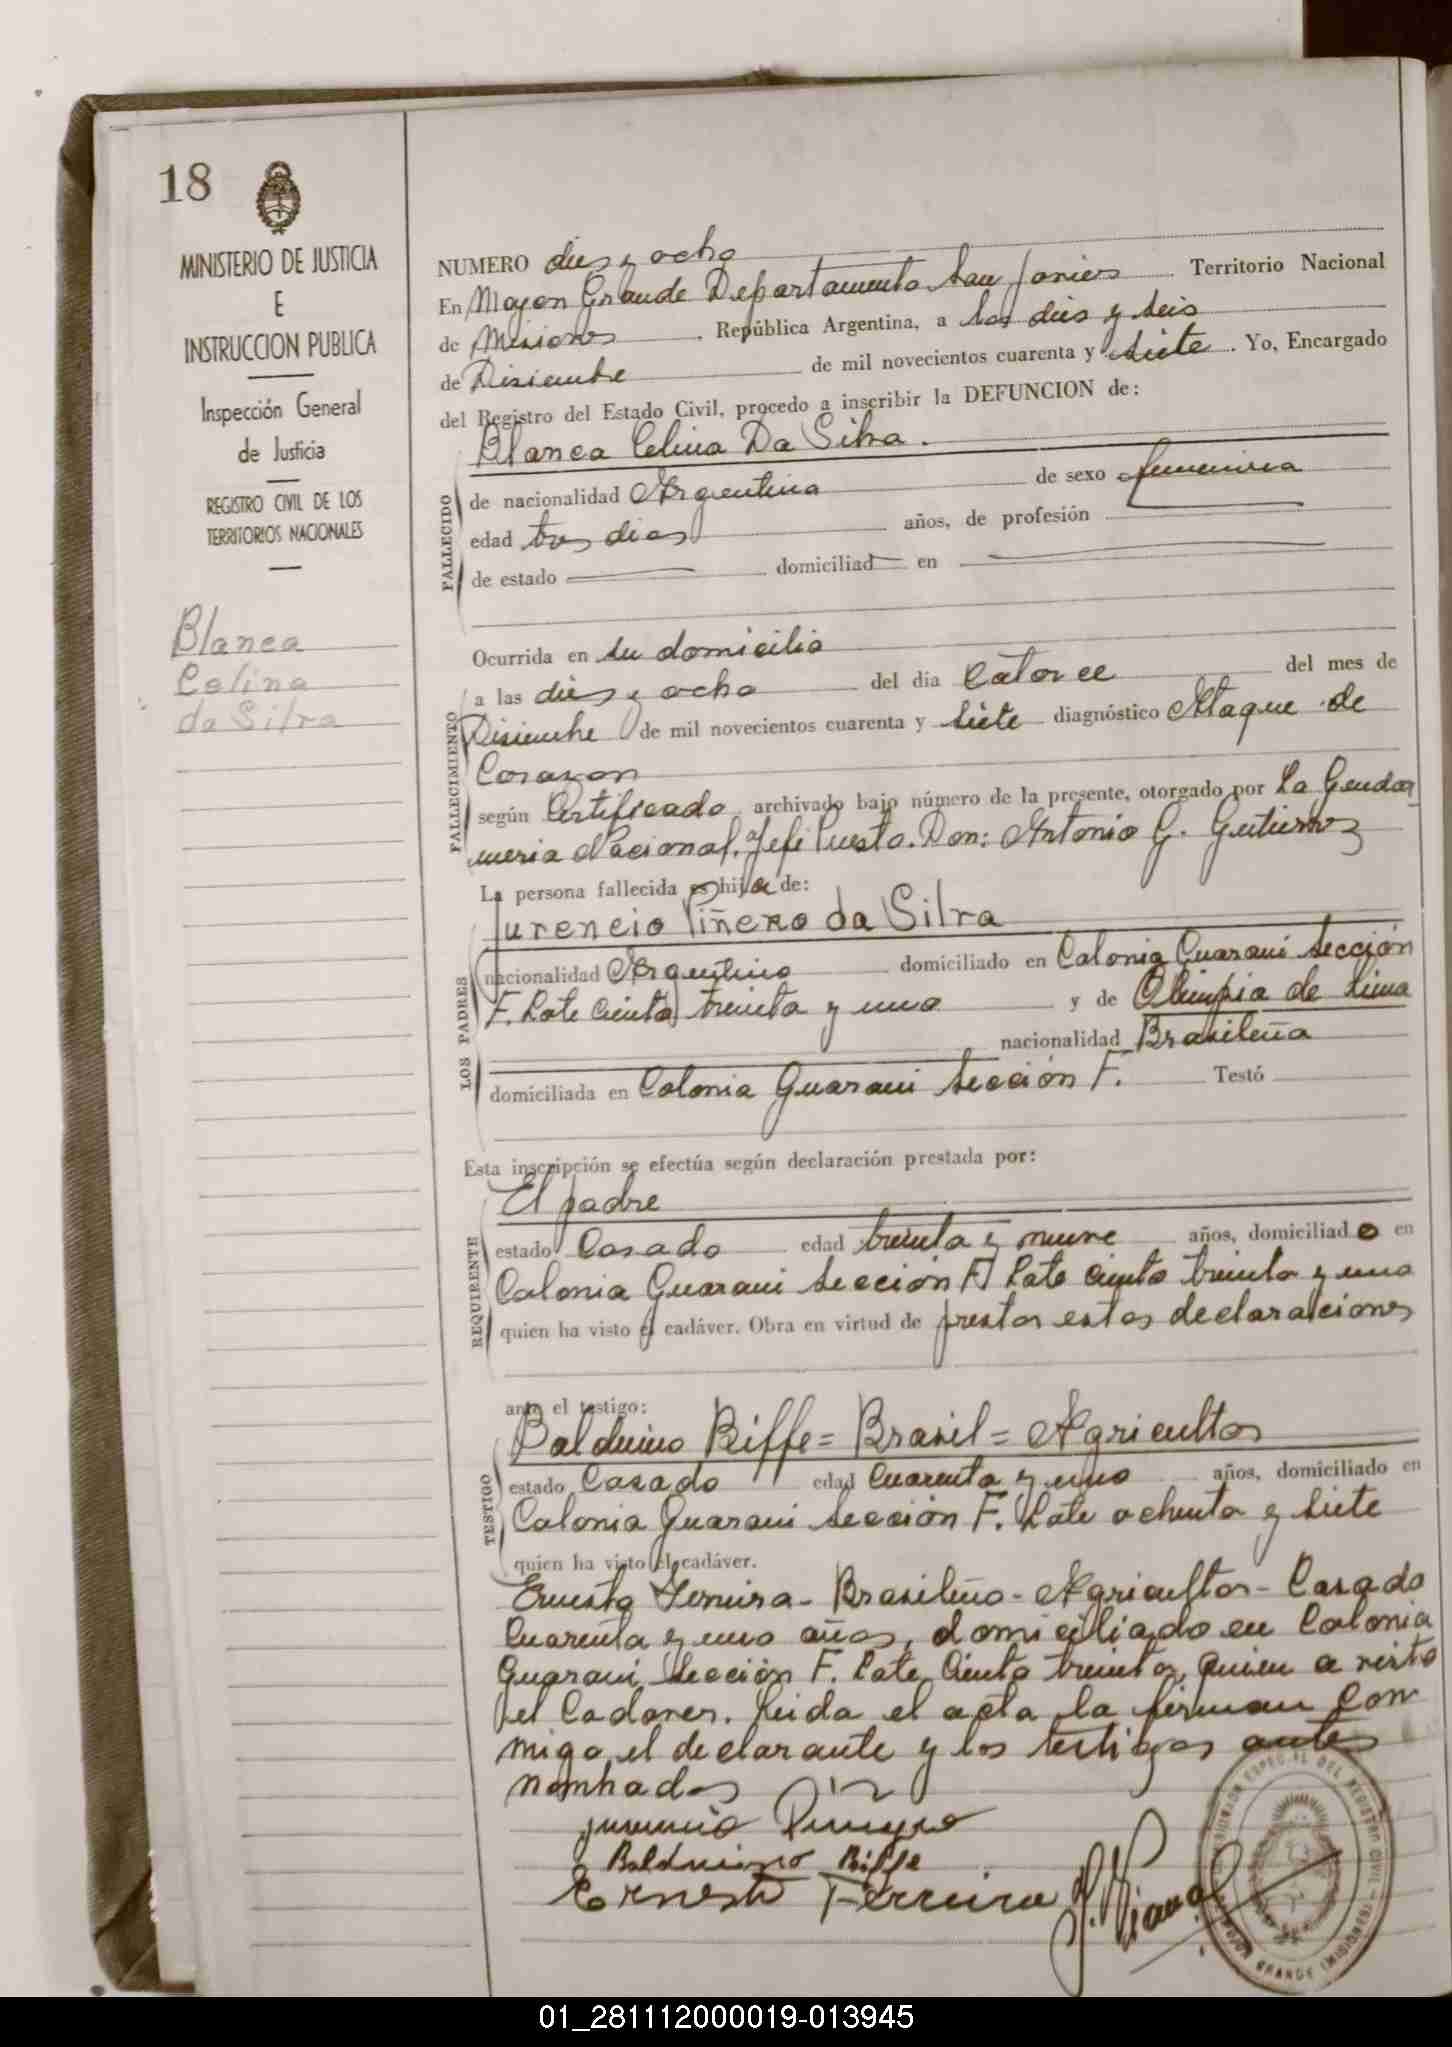 18
MINISTERIO DE JUSTICIA
E
INSTRUCCION PUBLICA
Inspección General
de Justicia
REGISTRO CIVIL DE LOS
TERRITORIOS NACIONALES
Blanca
Celina
da Silva
NUMERO dies y ocho
En Mojon Grande Departamento San Javier Territorio Nacional
de Misiones . República Argentina, a los dies y seis
de Disiembe de mil novecientos cuarenta y siete . Yo, Encargado
del Registro del Estado Civil, procedo a inscribir la DEFUNCION de:
Blanca Celina Da Silva.
FALLECIDO
de nacionalidad Argentina de sexo femenina
edad tres dias años, de profesión
de estado domiciliad en
Ocurrida en su domicilio
FALLECIMIENTO
a las dies y ocho del día Catorce del mes de
Disiembe de mil novecientos cuarenta y siete diagnóstico Ataque de
Corazon
según Certificado archivado bajo número de la presente, otorgado por La Gendar
meria Nacional. Jefe Puesto. Don: Antonio G. Gutierrez
La persona fallecida es hija de:
LOS PADRES
Jurencio Piñero da Silva
nacionalidad Argentino domiciliado en Colonia Guarani Sección
F. Lote Ciento treinta y uno y de Olimpia de Lima
nacionalidad Brasileña
domiciliada en Colonia Guarani Sección F. Testó
Esta inscripción se efectúa según declaración prestada por:
REQUIRENTE
El padre
estado Casado edad treinta y nueve años, domiciliado en
Colonia Guarani Sección F. Lote ciento treinta y uno
quien ha visto el cadáver. Obra en virtud de prestar estas declaraciones
ante el testigo:
TESTIGO
Balduino Biffe = Brasil = Agricultor
estado Casado edad Cuarenta y uno años, domiciliado en
Colonia Guarani Sección F. Lote ochenta y siete
quien ha visto el cadáver.
Ernesto Ferreira - Brasileño - Agricultor - Casado
Cuarenta y uno años, domiciliado en Colonia
Guarani Sección F. Lote Ciento treinta, quien a visto
el Cadaver. Leida el acta la firman Con
migo, el declarante y los testigos antes
nombados
Piñeyro
Balduino Biffe
Ernesto Ferreira
ESPECIAL DEL REGISTRO CIVIL
MOJON GRANDE (MISIONES)
01_281112000019-013945